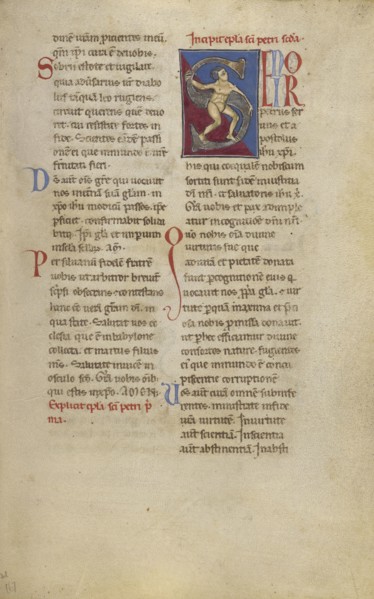 dinem uram proicientes in eu.
qm ipi cura est de uobis.
Sobrii estote et uigilate
quia aduersarius ur diabo
lus tãquã leo rugiens
circuit querens quem deuo
ret. cui resistite fortes in
fide. Scientes eãdẽ passi
onẽ
fraternitati fieri.
Ds autẽ oĩs grẽ qui uocauit
nos in eternã suã glam. in
xpo ihu modicũ passos. ipse
pficiet. confirmabit solida
bitq. Ipi gla et imperium
in secula sclor. AM.
Per siluanũ fidelẽ frarẽ
uobis ut arbitror breuit
scripsi obsecrans contestans
hanc eẽ uerã gram di. in
qua statis. Salutat uos ec
clesia que ẽ in babylone
collecta. et marcus filius
ms. Salutate inuicẽ in
osculo sco. Gra uobis oib
qui estis in xpo. AMEN.
Explicit epla sci petri p
ma.
Incipit epla sci petri scda.
SIMO
LIR
petrus ser
uus et a
postolus
ihu xpi.
his qui coequalẽ nobiscum
sortiti sunt fidẽ in iustitia
di nri. et saluatoris ihu xpi.
Gra uobis et pax adimple
atur in cognitione dni nri.
Quo nobis oia diuine
uirtutis sue que
ad uitã et pietatẽ donata
sunt p cognitionẽ eius q
uocauit nos ppria gla. et uir
tute p quã maxima et pci
osa nobis pmissa donauit.
ut p hec efficiamini diuine
consortes nature. fugientes
ei que in mundo ẽ concu
piscentie corruptionẽ
Uos autẽ curã omnẽ subinfe
rentes. ministrate in fide
urã uirtutẽ. In uirtute
autẽ scientiã. In scientia
autẽ abstinentiã. In absti